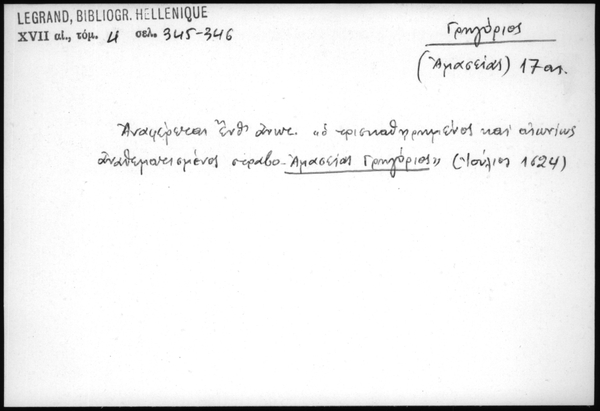 LEGRAND, BIBLIOGR. HELLENIQUE
XVII αἰ., τόμ. 4 σελ. 345-346
Γρηγόριος
(Ἀμασείας) 17 αι.
Ἀναφέρεται ἔνθ' ἀνωτ. «ὁ τρισκαθῃρημένος καὶ αἰωνίως
ἀναθεματισμένος στραβο-Ἀμασείας Γρηγόριος» (Ἰούλιος 1624)